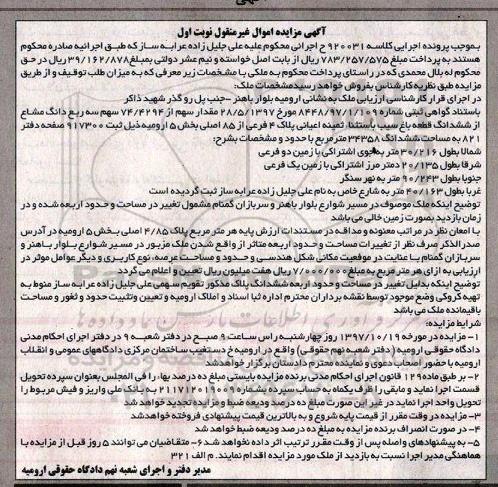 آگهی مزایده اموال غیرمنقول نوبت اول
بموجب پرونده اجرایی کلاسه 920031 ح اجرائی محکوم علیه علی جلیل زاده عرابه ساز که طبق اجرائیه صادره محکوم
هستند به پرداخت مبلغ 783/257/575 ریال از بابت اصل خواسته و نیم عشر دولتی بمبلغ 39/162/878 ریال در حق
محکوم له بلال محمدی که در راستای پرداخت محکوم به ملکی با مشخصات زیر معرفی که به میزان طلب توقیف و از طریق
مزایده طبق نظریه کارشناس بفروش خواهد رسید مشخصات ملک:
در اجرای قرار کارشناسی ارزیابی ملک به نشانی ارومیه بلوار باهنر -جنب پل رو گذر شهید ذاکر
باستناد گواهی ثبتی شماره 8448/97/1/109 مورخ 28/5/1397 مقدار سهم از 74/4294 سهم سه ربع دانگ مشاع
از ششدانگ قطعه باغ سیب باستثناء ثمنه اعیانی پلاک 4 فرعی از 85 اصلی بخش 5 ارومیه ذیل ثبت 917300 صفحه دفتر
821 به مساحت ششدانگ 34358 متر مربع با حدود و مشخصات بشرح:
شمالا بطول 30/216 متر به جوی اشتراکی با زمین دو فرعی
شرقا بطول 20/135 دمتر مرز اشتراکی با زمین یک فرعی
جنوبا بطول 90/243 متر به نهر سنگر
غربا بطول 40/163 متر به شارع خاص به نام علی جلیل زاده عرابه ساز ثبت گردیده است
توضیح اینکه ملک موصوف در مسیر شوارع بلوار باهنر و سربازان گمنام مشمول تغییر در مساحت و حدود اربعه شده و در
زمان بازدید بصورت زمین خالی می باشد
با امعان نظر در مراتب معنونه و مداقه در مستندات ارزش پایه هر متر مربع پلاک 4/85 اصلی بخش 5 ارومیه در آدرس
صدرالذکر صرف نظر از تغییرات مساحت و حدود اربعه متاثر از واقع شدن ملک مزبور در مسیر شوارع بلوار باهنر و
سربازان گمنام با عنایت در موقعیت مکانی شکل هندسی و حدود و مساحت عرصه، نوع کاربری و دیگر عوامل موثر در
ارزیابی به ازای هر متر مربع به مبلغ 7/000/000 ریال هفت میلیون ریال تعیین و اعلام می گردد
توضیح اینکه بدلیل تغییر در مساحت و حدود اربعه ششدانگ پلاک مذکور تقویم سهمی علی جلیل زاده عرابه ساز منوط به
تهیه کروکی وضع موجود توسط نقشه برداران محترم اداره ثبت اسناد و املاک ارومیه و تعیین و تثبیت حدود و ثغور و مساحت
باقیمانده ملک می باشد
شرایط مزایده:
1- مزایده در مورخه 1397/10/19 روز چهارشنبه راس ساعت 9 صبح در دفتر شعبه 9 در دفتر اجرای احکام مدنی
دادگاه حقوقی ارومیه (دفتر شعبه نهم حقوقی) واقع در ارومیه خ دستغیب ساختمان مرکزی دادگاههای عمومی و انقلاب
ارومیه با حضور اصحاب دعوی و نماینده محترم دادستان برگزار خواهد شد
2- بر طبق ماده 129 قانون اجرای احکام مدنی برنده مزایده بایستی مبلغ ده درصد بها، را فی المجلس بعنوان سپرده تحویل
قسمت اجرا نماید و مابقی را ظرف یکماه به حساب سپرده بشماره 2117120119009 به بانک ملی واریز و فیش مربوط را
تحویل واحد اجرا نماید در غیر این صورت مبلغ ده درصد ودیعه ضبط و مزایده تجدید خواهد شد
3- مزایده در وقت مقرر از قیمت پایه شروع و به بالاترین قیمت پیشنهادی فروخته خواهد شد
4- در صورت انصراف برنده مزایده به مبلغ ده درصد ودیعه ضبط خواهد شد
5- به پیشنهادهای واصله پس از وقت مقرر ترتیب اثر داده نخواهد شد 6- متقاضیان می توانند 5 روز قبل از مزایده با
هماهنگی مدیر اجرا نسبت به بازدید از ملک مورد مزایده اقدام نمایند. م الف 321
مدیر دفتر و اجرای شعبه نهم دادگاه حقوقی ارومیه